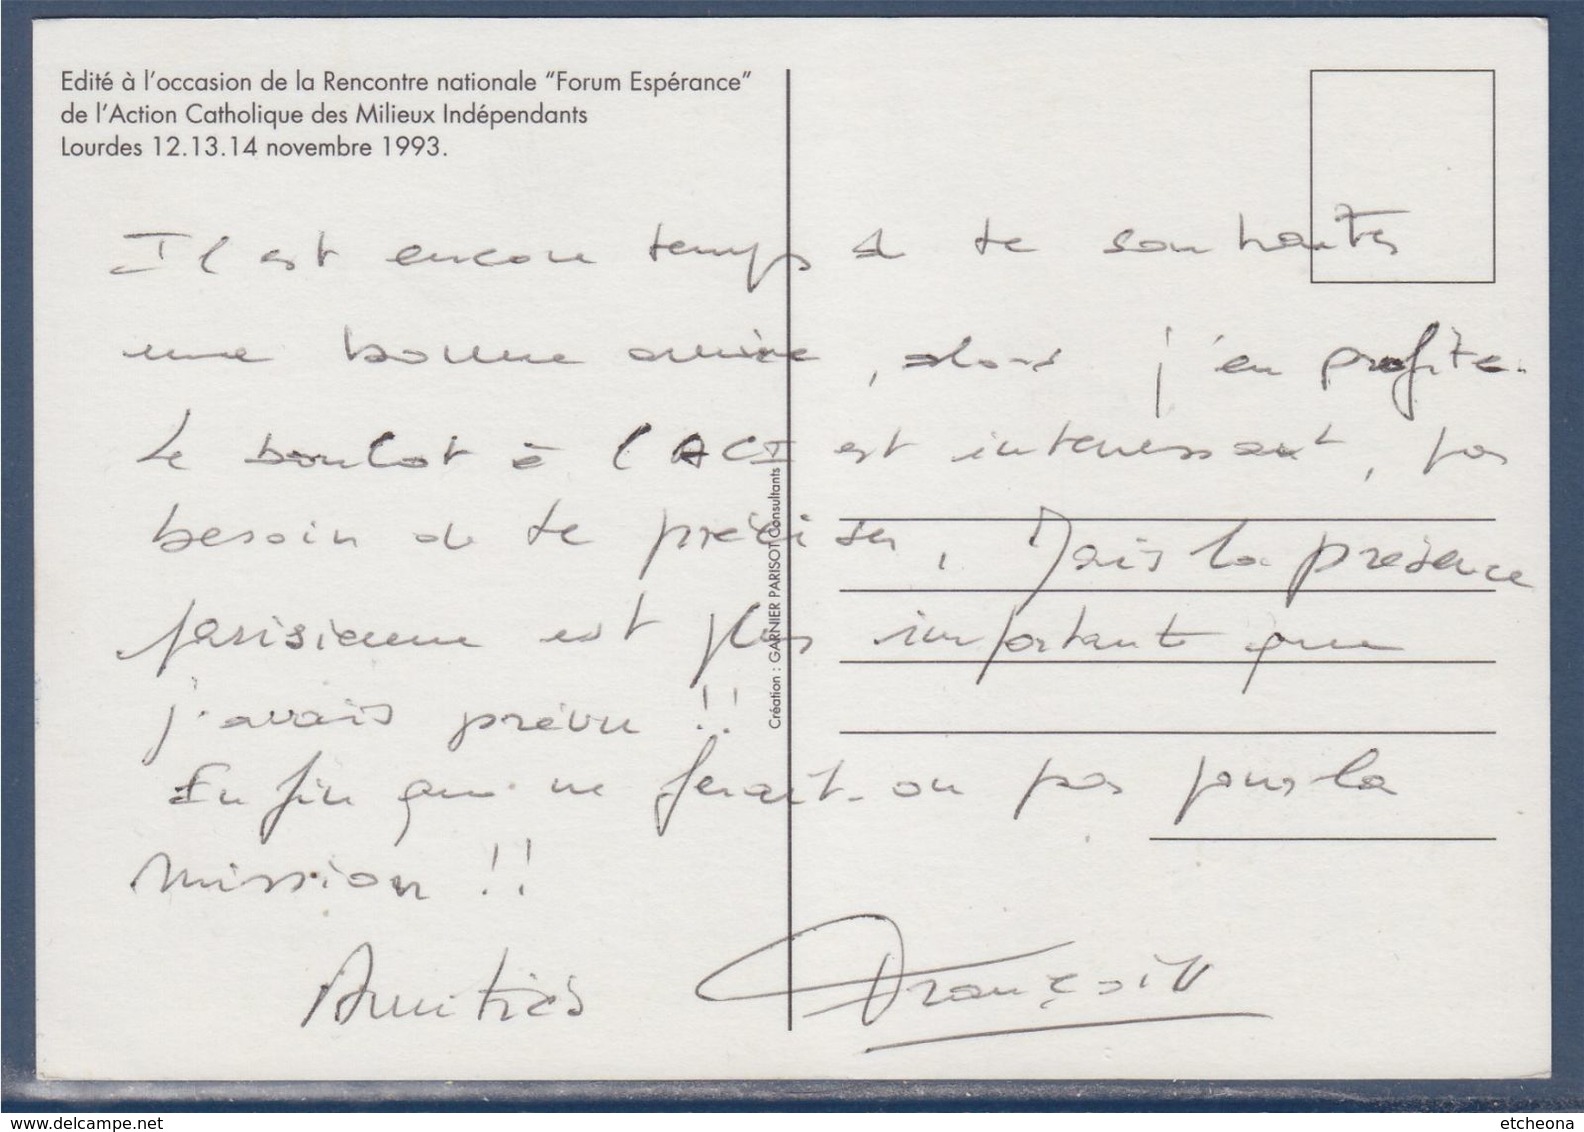 Edité à l'occasion de la Rencontre nationale "Forum Espérance"
de l'Action Catholique des Milieux Indépendants
Lourdes 12.13.14 novembre 1993.
Il est encore temps de te souhaiter
une bonne année, alors j'en profite.
Le boulot à l'ACI est intéressant, pas
besoin de te préciser, Mais la présence
parisienne est plus importante que
j'avais prévu !!
Enfin que ne ferait-on pas pour la
mission !!
Amitiés
Création : GARNIER PARISOT Consultants
etcheona